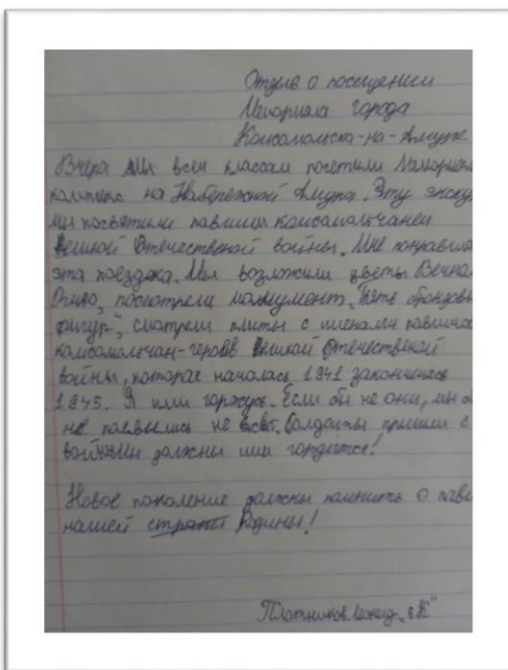 Отзыв о посещении
Мемориала города
Комсомольска-на-Амуре.
Вчера мы всем классам посетили Мемориал
комплекс на Набережной Амура. Эту экску
мы посвятили павшим комсомольчанам
Великой Отечественой войны. Мне понравила
эта поездака. Мы возложили цветы Вечна
Огню, посмотрели монумент „Пять бронзовы
фигур", смотрели плиты с именами павших
комсомольчан-героев Великой Отечественой
войны, которая началась 1941 закончилась
1945. Я ими горжусь. Если бы не они, мы
не появились не свет. Солдаты пришли с
войны Мы должны ими гордится!
Новое поколение должны помнить о
нашей стране Родины!
Плотников Леонид